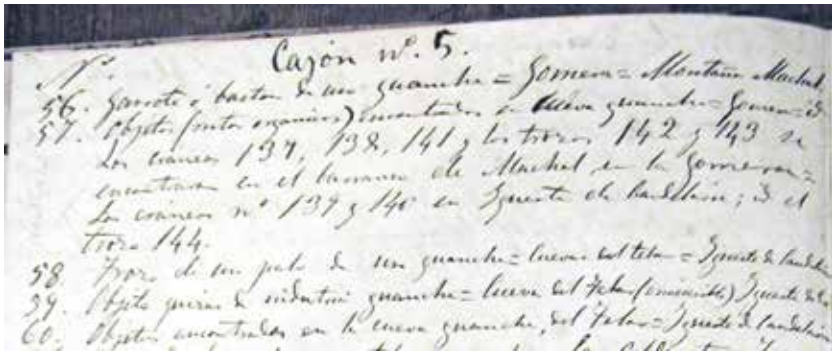 Cajón nº. 5.
Nº.
56. Garrote ó baston de un guanche = Gomera = Montaña Machal
57. Objetos (restos organicos) encontrados en cueva guanche = Gomera = id
Los craneos 137, 138, 141 y los trozos 142 y 143 se
encontraron en el barranco de Machal en la Gomera =
Los craneos nº 139 y 140 en Igueste de Candelaria; id el
trozo 144.
58. Trozo de un palo de un guanche = Cuevas del telar = Igueste de Candelaria
59. Objeto quizas de industria guanche = Cueva del Telar (inaccesible) Igueste de
60. Objetos encontrados en la cueva guanche, del Telar = Igueste de Candelaria